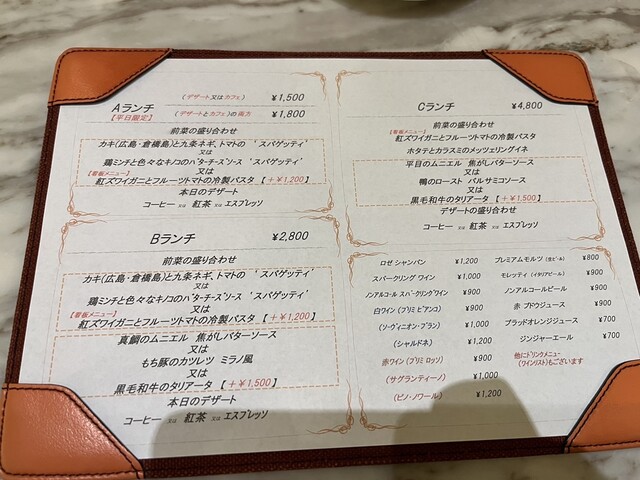 Aランチ
【平日限定】
(デザート又はカフェ) ¥1,500
(デザートとカフェ)の両方 ¥1,800
前菜の盛り合わせ
カキ(広島・倉橋島)と九条ネギ、トマトの ‘スパゲッティ’
又は
鶏ミンチと色々なキノコのバターチーズソース ‘スパゲッティ’
【看板メニュー】 又は
紅ズワイガニとフルーツトマトの冷製パスタ 【+¥1,200】
本日のデザート
コーヒー 又は 紅茶 又は エスプレッソ
Bランチ ¥2,800
前菜の盛り合わせ
カキ(広島・倉橋島)と九条ネギ、トマトの ‘スパゲッティ’
又は
鶏ミンチと色々なキノコのバターチーズソース ‘スパゲッティ’
【看板メニュー】 又は
紅ズワイガニとフルーツトマトの冷製パスタ 【+¥1,200】
真鯛のムニエル 焦がしバターソース
又は
もち豚のカツレツ ミラノ風
又は
黒毛和牛のタリアータ 【+¥1,500】
本日のデザート
コーヒー 又は 紅茶 又は エスプレッソ
Cランチ ¥4,800
前菜の盛り合わせ
【看板メニュー】
紅ズワイガニとフルーツトマトの冷製パスタ
ホタテとカラスミのメッツェリングイネ
平目のムニエル 焦がしバターソース
又は
鴨のロースト バルサミコソース
又は
黒毛和牛のタリアータ 【+¥1,500】
デザートの盛り合わせ
コーヒー 又は 紅茶 又は エスプレッソ
ロゼ シャンパン ¥1,200
スパークリング ワイン ¥1,000
ノンアルコール スパークリングワイン ¥900
白ワイン(プリミ ビアンコ) ¥900
(ソーヴィニオン・ブラン) ¥1,000
(シャルドネ) ¥1,200
赤ワイン(プリミ ロッソ) ¥900
(サグランティーノ) ¥1,000
(ピノ・ノワール) ¥1,200
プレミアムモルツ(生ビール) ¥800
モレッティ(イタリアビール) ¥900
ノンアルコールビール ¥900
赤 ブドウジュース ¥900
ブラッドオレンジジュース ¥700
ジンジャーエール ¥700
他にドリンクメニュー
(ワインリスト)もございます